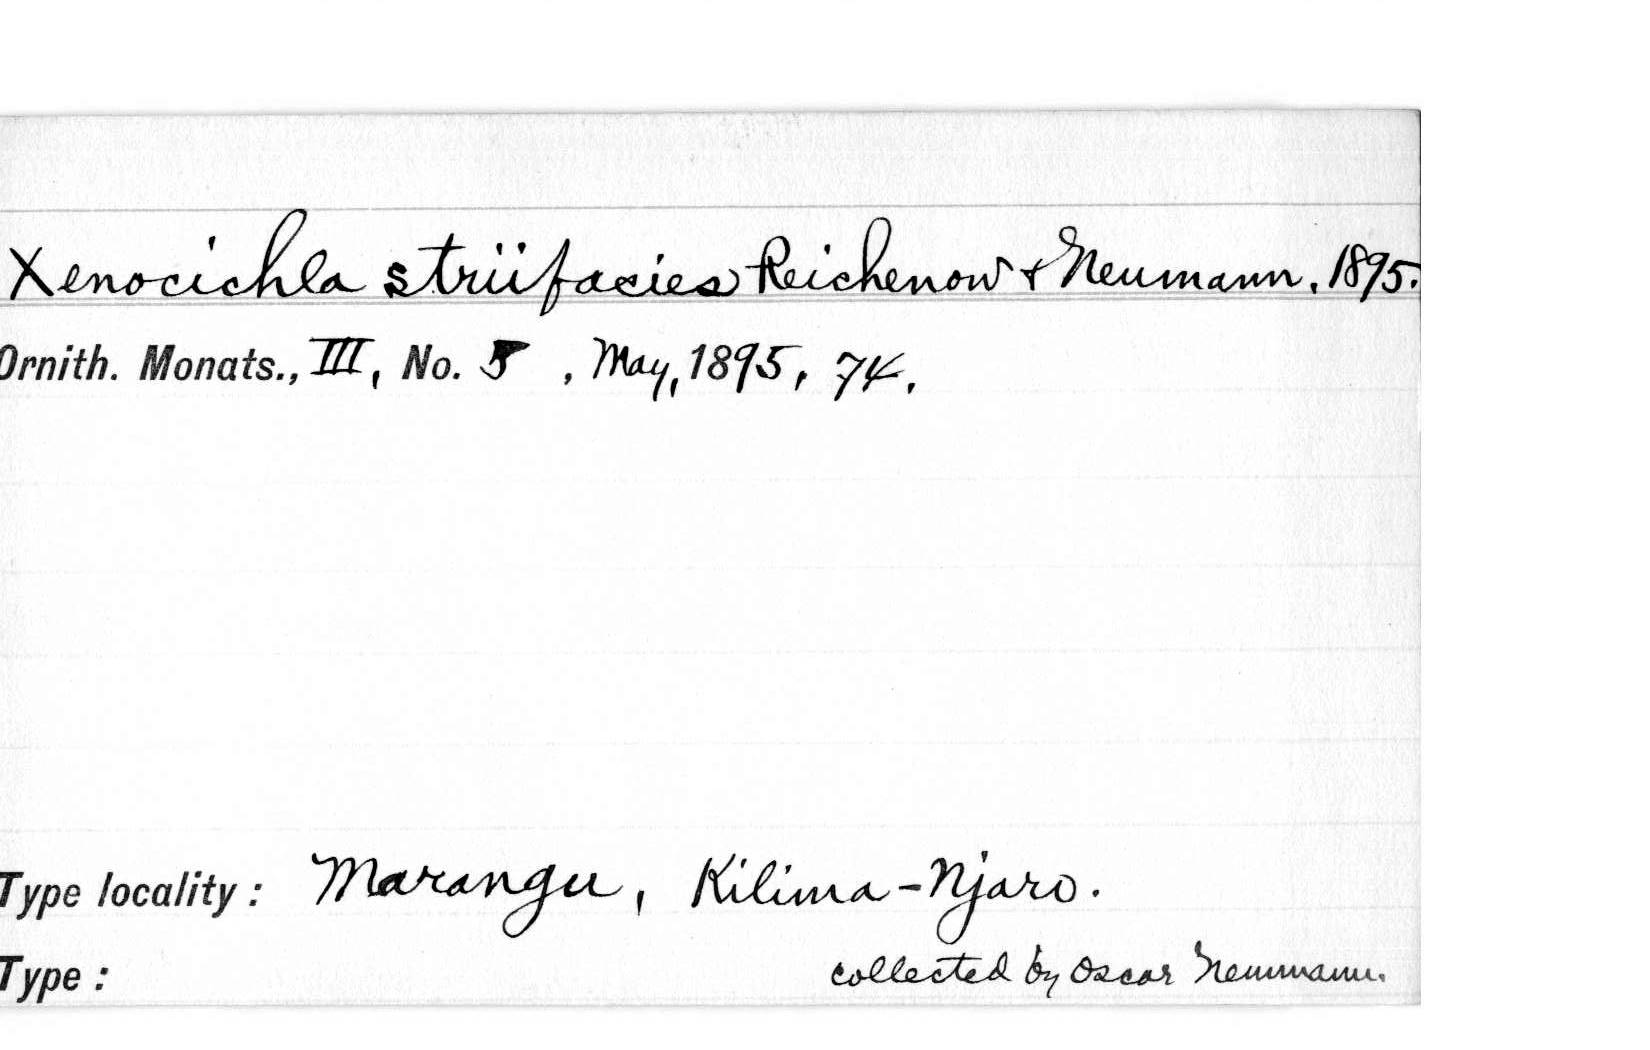 Xenocichla striifacies Reichenow & Neumann, 1895.
Ornith. Monats., III, No. 5, May, 1895, 74.
Type locality: Marangu, Kilima-Njaro.
Type: collected by Oscar Neumann.